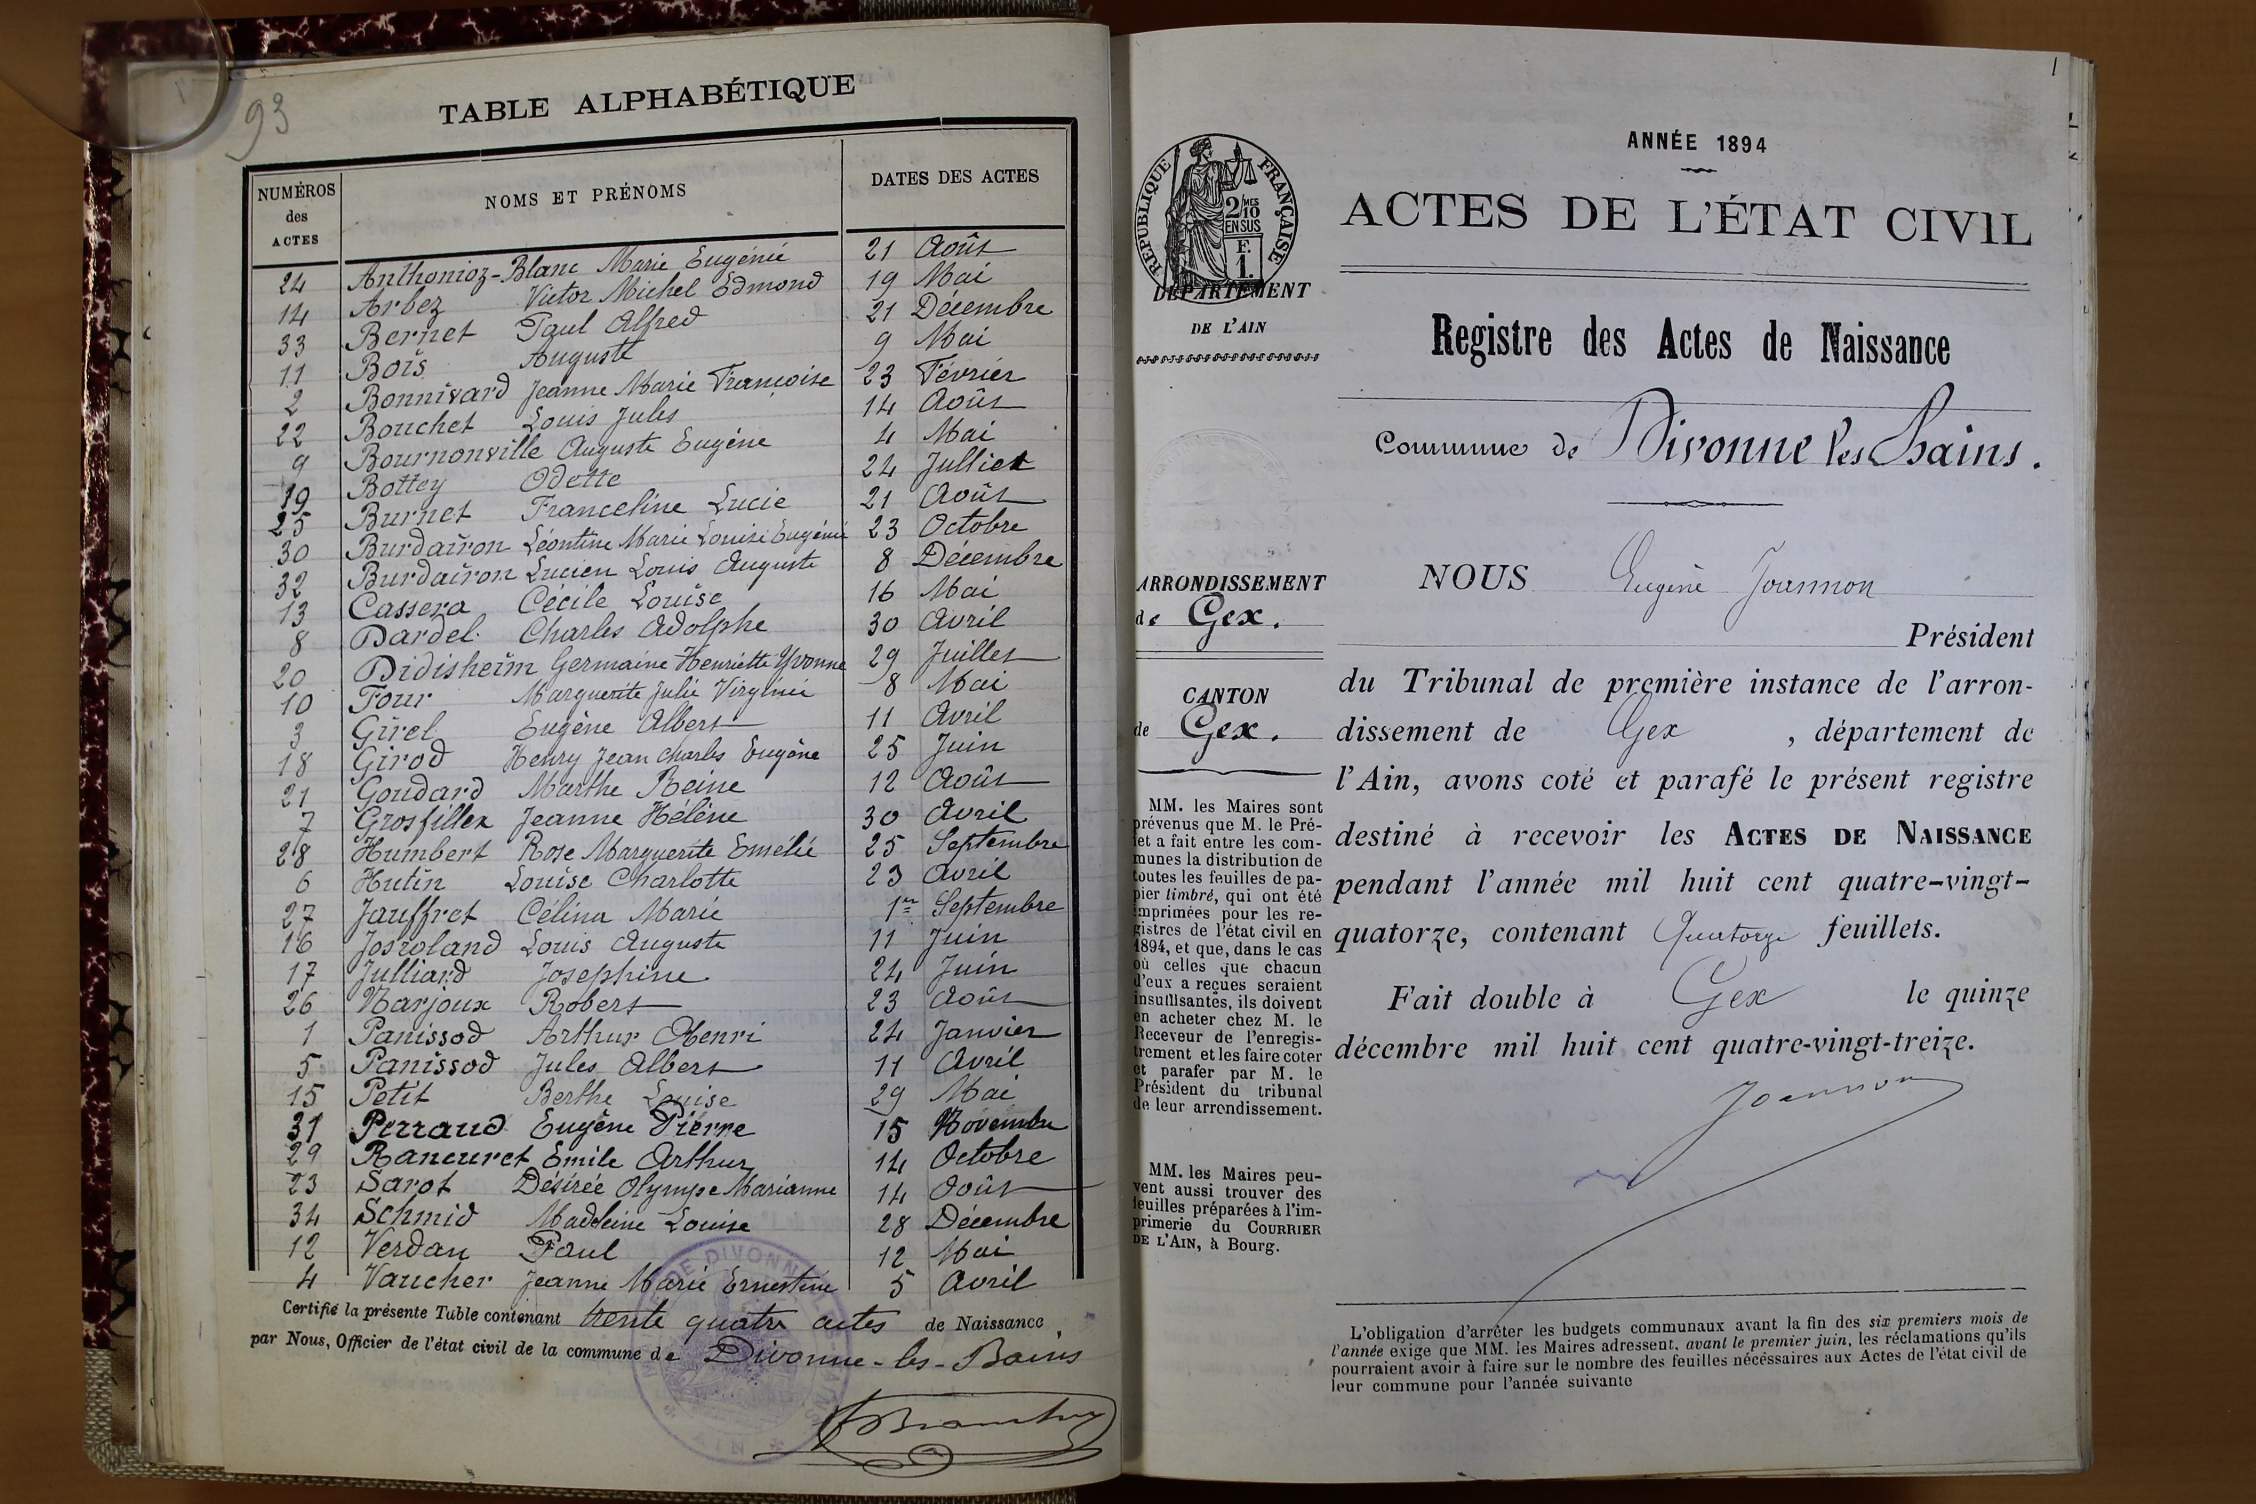 93
TABLE ALPHABÉTIQUE
NUMÉROS des ACTES NOMS ET PRÉNOMS DATES DES ACTES
24 Anthonioz-Blanc Marie Eugénie 21 Août
14 Arbez Victor Michel Edmond 19 Mai
33 Bernet Paul Alfred 21 Décembre
11 Bois Auguste 9 Mai
2 Bonnivard Jeanne Marie Françoise 23 Février
22 Bouchet Louis Jules 14 Août
9 Bournonville Auguste Eugène 4 Mai
19 Bottey Odette 24 Julliet
25 Burnet Franceline Lucie 21 Août
30 Burdairon Léontine Marie Louise Eugénie 23 Octobre
32 Burdairon Lucien Louis Auguste 8 Décembre
13 Cassera Cécile Louise 16 Mai
8 Dardel Charles Adolphe 30 Avril
20 Didisheim Germaine Henriette Yvonne 29 Juillet
10 Four Marguerite Julie Virginie 8 Mai
3 Girel Eugène Albert 11 Avril
18 Girod Henry Jean Charles Eugène 25 Juin
21 Goudard Marthe Reine 12 Août
7 Grosfillex Jeanne Hélène 30 Avril
28 Humbert Rose Marguerite Emélie 25 Septembre
6 Hutin Louise Charlotte 23 Avril
27 Jauffret Célina Marie 1er Septembre
16 Josroland Louis Auguste 11 Juin
17 Julliard Josephine 24 Juin
26 Marjoux Robert 23 Août
1 Panissod Arthur Henri 24 Janvier
5 Panissod Jules Albert 11 Avril
15 Petit Berthe Louise 29 Mai
31 Perraud Eugène Pierre 15 Novembre
29 Rancuret Emile Arthur 14 Octobre
23 Sarot Désirée Olympe Marianne 14 Août
34 Schmid Madeleine Louise 28 Décembre
12 Verdan Paul 12 Mai
4 Vaucher Jeanne Marie Ernestine 5 Avril
Certifié la présente Table contenant trente quatre actes de Naissance
par Nous, Officier de l'état civil de la commune de Divonne-les-Bains
1
RÉPUBLIQUE FRANÇAISE
2/10 MES EN SUS
F. 1.
DÉPARTEMENT
DE L'AIN
ARRONDISSEMENT
de Gex.
CANTON
de Gex.
MM. les Maires sont
prévenus que M. le Pré-
fet a fait entre les com-
munes la distribution de
toutes les feuilles de pa-
pier timbré, qui ont été
imprimées pour les re-
gistres de l'état civil en
1894, et que, dans le cas
où celles que chacun
d'eux a reçues seraient
insuffisantes, ils doivent
en acheter chez M. le
Receveur de l'enregis-
trement et les faire coter
et parafer par M. le
Président du tribunal
de leur arrondissement.
MM. les Maires peu-
vent aussi trouver des
feuilles préparées à l'im-
primerie du COURRIER
DE L'AIN, à Bourg.
ANNÉE 1894
ACTES DE L'ÉTAT CIVIL
Registre des Actes de Naissance
Commune de Divonne les Bains.
NOUS Eugène Joannon
Président
du Tribunal de première instance de l'arron-
dissement de Gex, département de
l'Ain, avons coté et parafé le présent registre
destiné à recevoir les ACTES DE NAISSANCE
pendant l'année mil huit cent quatre-vingt-
quatorze, contenant Quatorze feuillets.
Fait double à Gex le quinze
décembre mil huit cent quatre-vingt-treize.
Joannon
L'obligation d'arrêter les budgets communaux avant la fin des six premiers mois de
l'année exige que MM. les Maires adressent, avant le premier juin, les réclamations qu'ils
pourraient avoir à faire sur le nombre des feuilles nécessaires aux Actes de l'état civil de
leur commune pour l'année suivante